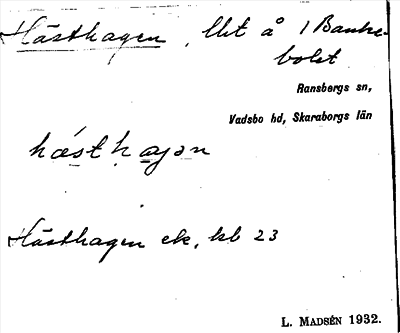 Hästhagen, lht å 1 Banke-
bolet
Ransbergs sn,
Vadsbo hd, Skaraborgs län
hǽsthagən
Hästhagen ek, kb 23
L. MADSÉN 1932.